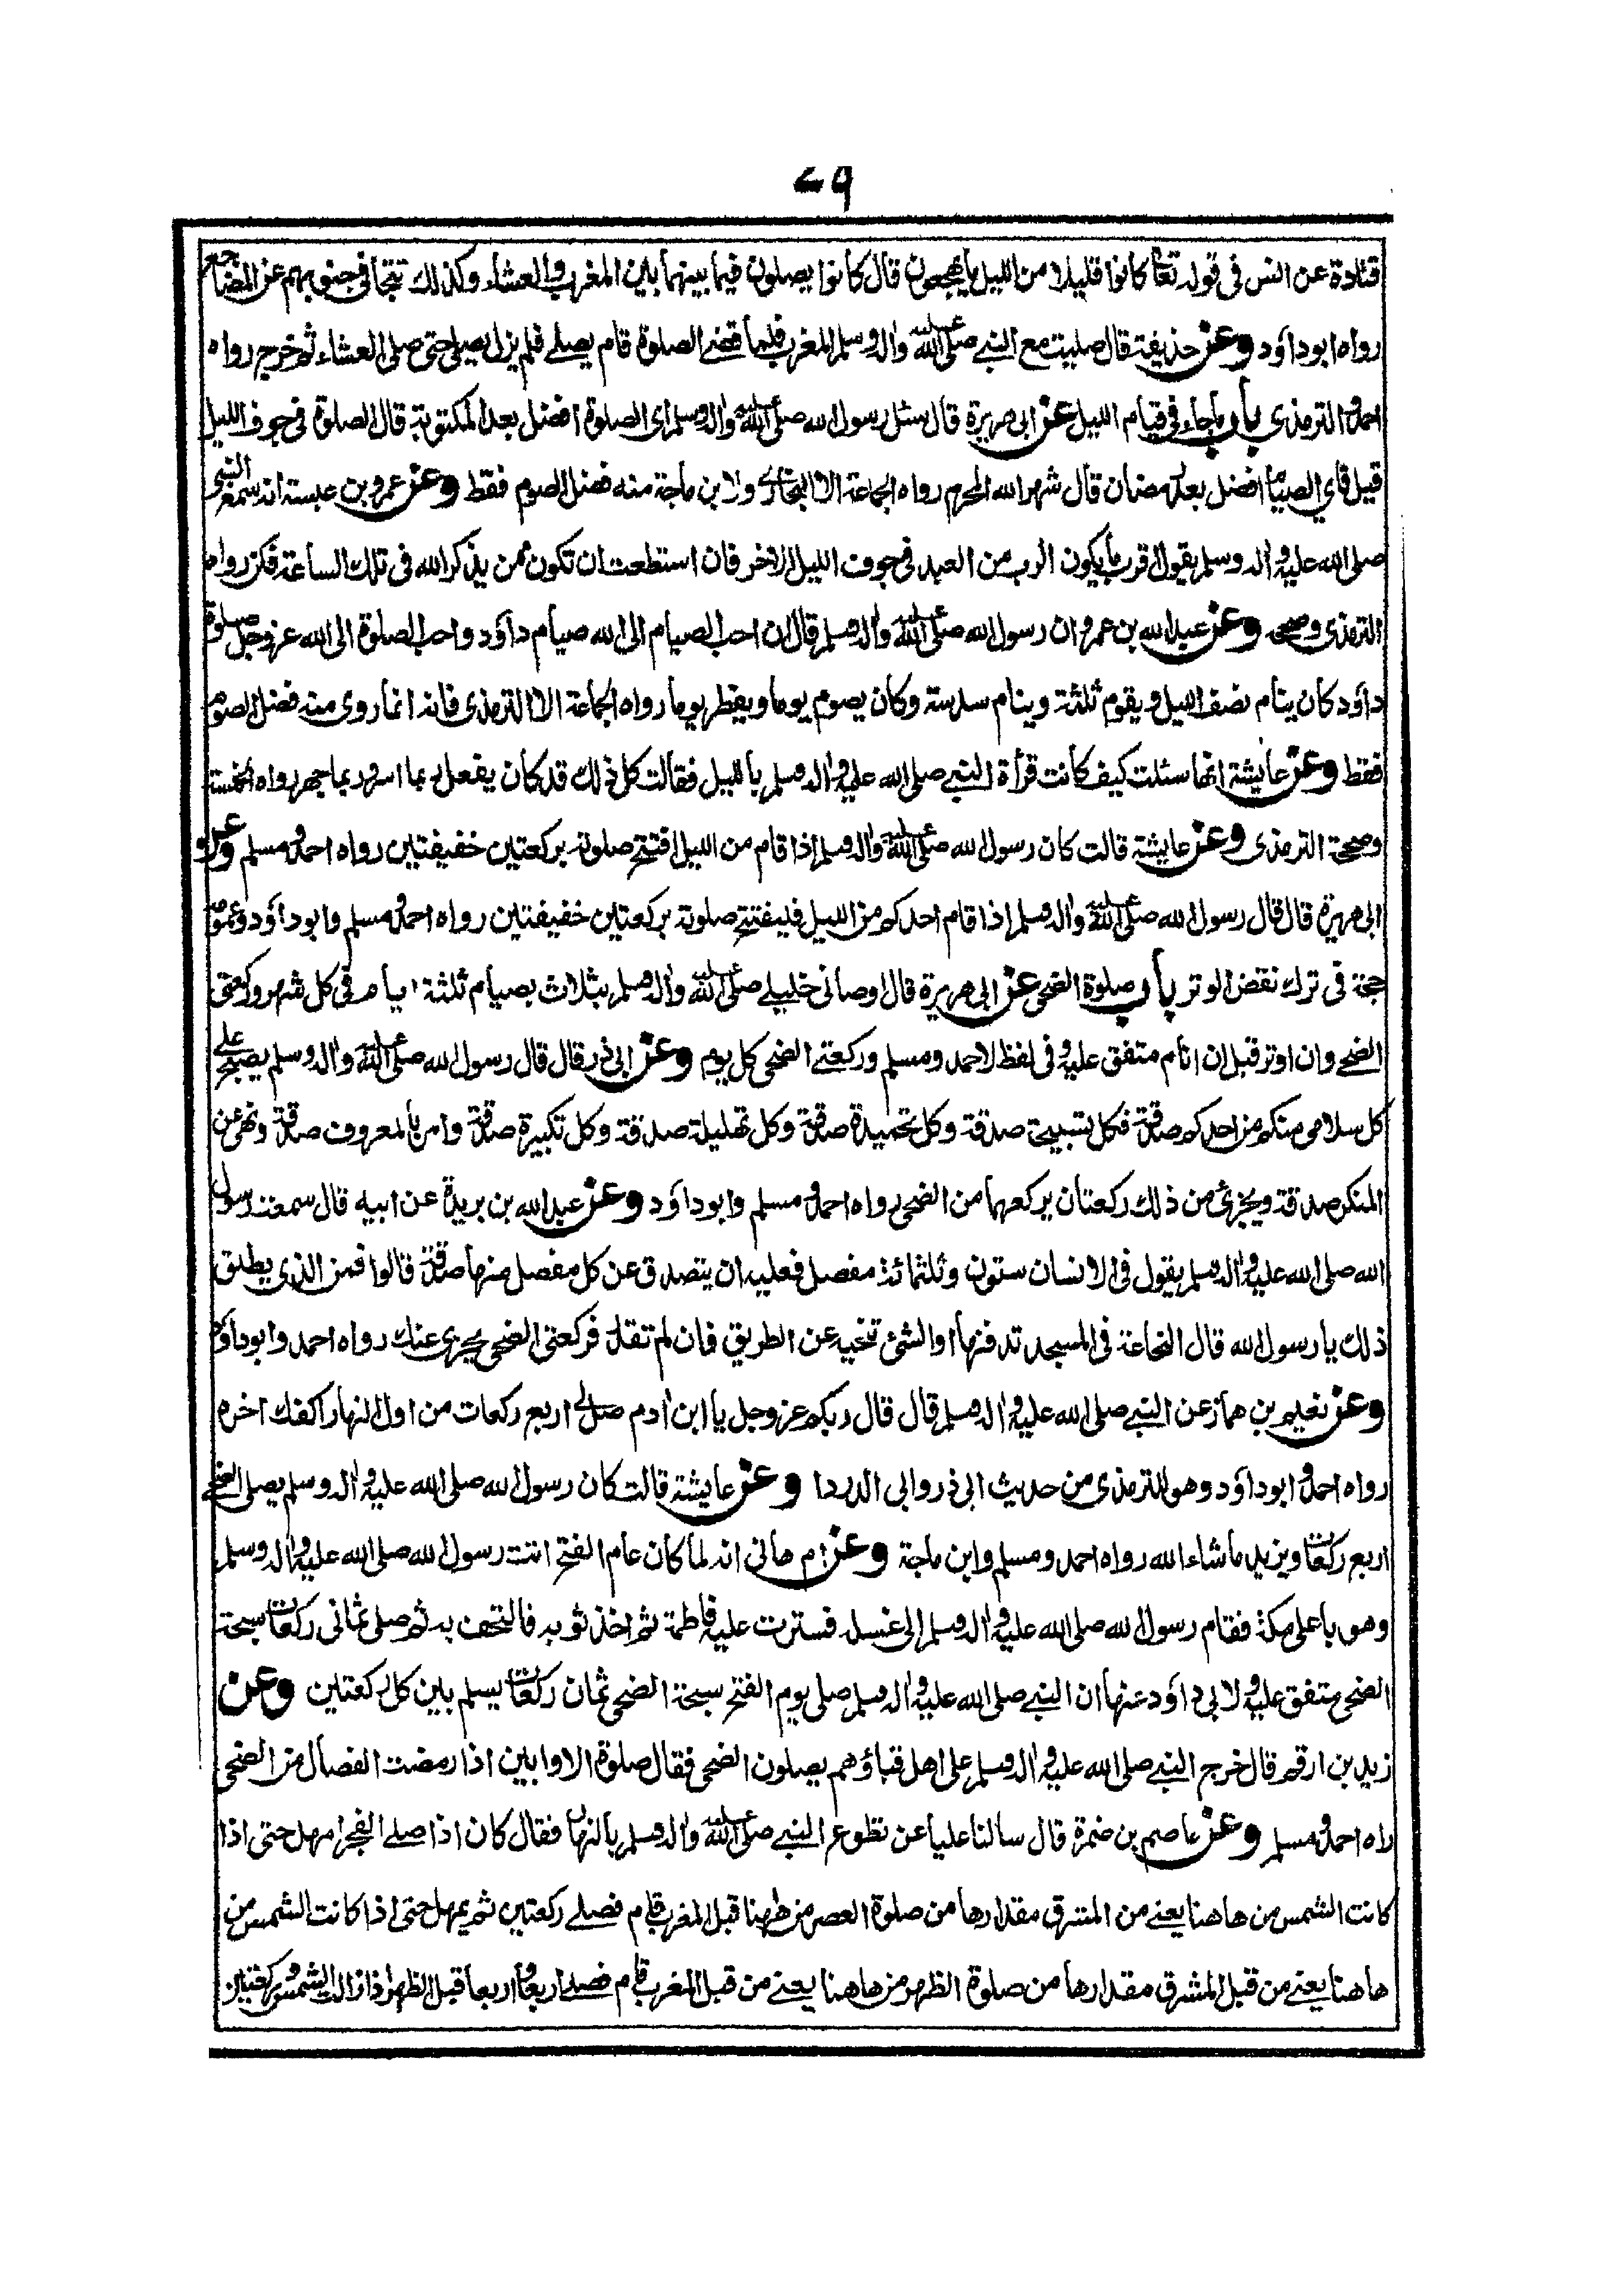 ۷۹
قتادة عن انس فى قوله تعا كانوا قليلا من الليل ما يهجعون قال كانوا يصلون فيما بينهما بين المغرب والعشاء وكذلك تتجافى جنوبهم عن المضاجع
رواه ابو داؤد وعن حذيفة قال صليت مع النبى صلى الله عليه واٰله وسلم المغرب فلما قضى الصلوة قام يصلى فلم يزل يصلى حتى صلى العشاء ثم خرج رواه
احمد والترمذى باب ماجاء فى قيام الليل عن ابى هريرة قال سئل رسول الله صلى الله عليه واٰله وسلم اى الصلوة افضل بعد المكتوبة قال الصلوة فى جوف الليل
قيل فاي الصيام افضل بعد رمضان قال شهر الله المحرم رواه الجماعة الا البخارى ولابن ماجة منه فضل الصوم فقط وعن عمرو بن عبسة انه سمع النبى
صلى الله عليه واٰله وسلم يقول اقرب ما يكون الرب من العبد فى جوف الليل الاٰخر فان استطعت ان تكون ممن يذكر الله فى تلك الساعة فكن رواه
الترمذى وصححه وعن عبد الله بن عمرو ان رسول الله صلى الله عليه واٰله وسلم قال ان احب الصيام الى الله صيام داؤد واحب الصلوة الى الله عز وجل صلوة
داؤد كان ينام نصف الليل ويقوم ثلثة وينام سدسة وكان يصوم يوما ويفطر يوما رواه الجماعة الا الترمذى فانه انما روى منه فضل الصوم
فقط وعن عايشة انها سئلت كيف كانت قرأة النبى صلى الله عليه واٰله وسلم بالليل فقالت كل ذلك قد كان يفعل ربما اسر وربما جهر رواه الخمسة
وصححة الترمذى وعن عايشة قالت كان رسول الله صلى الله عليه واٰله وسلم اذا قام من الليل افتتح صلوته بركعتين خفيفتين رواه احمد ومسلم وعن
ابى هريرة قال قال رسول الله صلى الله عليه واٰله وسلم اذا قام احدكم من الليل فليفتتح صلوته بركعتين خفيفتين رواه احمد ومسلم وابو داؤد وعمومه
حجة فى ترك نقض الوتر باب صلوة الضحى عن ابى هريرة قال اوصانى خليلى صلى الله عليه واٰله وسلم بثلاث بصيام ثلثة ايام فى كل شهر وركعتى
الضحى وان اوتر قبل ان انام متفق عليه وفى لفظ لاحمد ومسلم وركعتى الضحى كل يوم وعن ابى ذر قال قال رسول الله صلى الله عليه واٰله وسلم يصبح على
كل سلامى منكم من احدكم صدقة فكل تسبيحة صدقة وكل تحميدة صدقة وكل تهليلة صدقة وكل تكبيرة صدقة وامر بالمعروف صدقة ونهى عن
المنكر صدقة ويجزئ من ذلك ركعتان يركعهما من الضحى رواه احمد ومسلم وابو داؤد وعن عبد الله بن بريدة عن ابيه قال سمعت رسول
الله صلى الله عليه واٰله وسلم يقول فى الانسان ستون وثلثمائة مفصل فعليه ان يتصدق عن كل مفصل منها صدقة قالوا فمن الذى يطلق
ذلك يا رسول الله قال النخاعة فى المسجد تدفنها او الشئ تنحيه عن الطريق فان لم تقدر فركعتى الضحى يجزى عنك رواه احمد وابو داؤد
وعن نعيم بن همار عن النبى صلى الله عليه واٰله وسلم قال قال ربكم عز وجل يا ابن اٰدم صل لى اربع ركعات من اول النهار اكفك اخره
رواه احمد وابو داؤد وهو للترمذى من حديث ابى ذر وابى الدردا وعن عايشة قالت كان رسول الله صلى الله عليه واٰله وسلم يصلى الضحى
اربع ركعات ويزيد ما شاء الله رواه احمد ومسلم وابن ماجة وعن ام هانى انه لما كان عام الفتح اتت رسول الله صلى الله عليه واٰله وسلم
وهو باعلى مكة فقام رسول الله صلى الله عليه واٰله وسلم الى غسله فسترت عليه فاطمة ثم اخذ ثوبه فالتحف به ثم صلى ثمانى ركعات سبحة
الضحى متفق عليه ولابى داؤد عنها ان النبى صلى الله عليه واٰله وسلم صلى يوم الفتح سبحة الضحى ثمان ركعات يسلم بين كل ركعتين وعن
زيد بن ارقم قال خرج النبى صلى الله عليه واٰله وسلم على اهل قباؤ هم يصلون الضحى فقال صلوة الاوابين اذا رمضت الفصال من الضحى
راه احمد ومسلم وعن عاصم بن ضمرة قال سالنا عليا عن تطوع النبى صلى الله عليه واٰله وسلم بالنهار فقال كان اذا صلى الفجر امهل حتى اذا
كانت الشمس من هاهنا يعنى من المشرق مقدارها من صلوة العصر من ههنا قبل المغرب قام فصلى ركعتين ثم يمهل حتى اذا كانت الشمس من
هاهنا يعنى من قبل المشرق مقدارها من صلوة الظهر من هاهنا يعنى من قبل المغرب قام فصلى اربعا واربعا قبل الظهر اذا زالت الشمس وركعتين